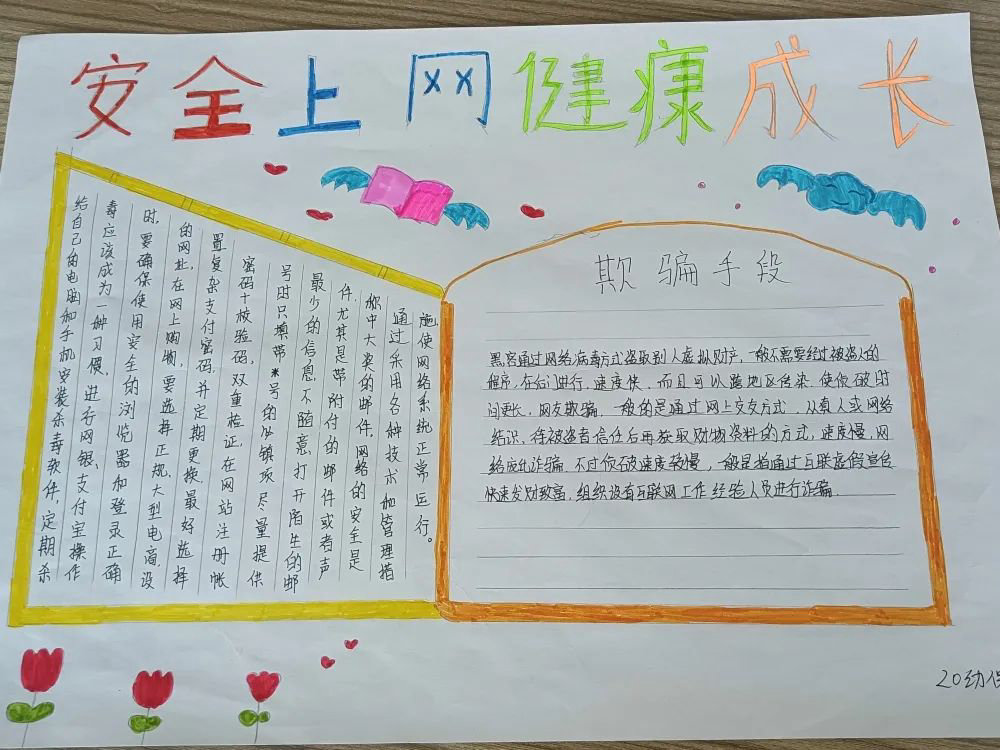 安全上网健康成长
给自己的电脑和手机安装杀毒软件,定期杀
毒应该成为一种习惯,进行网银、支付宝操作
时,要确保使用安全的浏览器和登录正确
的网址,在网上购物,要选择正规、大型电商,设
置复杂支付密码,并定期更换,最好选择
密码+校验码,双重检证,在网站注册帐
号时只填带*号的必镇项,尽量提供
最少的信息,不随意打开陌生的邮
件,尤其是带附付的邮件或者声
称中大奖的邮件,网络的安全是
通过采用各种技术和管理措
施,使网络系统正常运行。
欺骗手段
黑客通过网络病毒方式盗取别人虚拟财产,一般不需要经过被盗人的
程序,在后门进行,速度快,而且可以跨地区传染,使侦破时
间更长,网友欺骗,一般的是通过网上交友方式,从真人或网络
结识,待被盗者信任后再获取财物资料的方式,速度慢,网
络庞比诈骗,不过侦破速度较慢,一般是指通过互联虚假宣告
快速发财致富,组织没有互联网工作经验人员进行诈骗.
20幼保